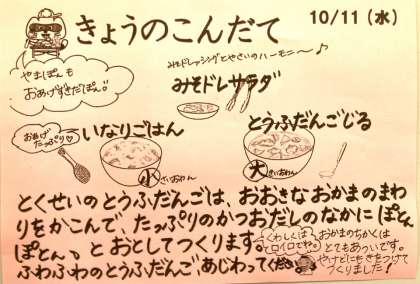 きょうのこんだて
10/11 (水)
やまぽんも
おあげすきだぽん♡
みそドレッシングとやさいのハーモニー〜♪
みそドレサラダ
おあげ
たっぷり♡
いなりごはん
小さいおわん
とうふだんごじる
大さいおわん
とくせいのとうふだんごは、おおきなおかまのまわ
りをかこんで、たっぷりのかつおだしのなかにぽとん
ぽとん、とおとしてつくります。
ふわふわのとうふだんご、あじわってくださ
くわしくは
おかまのちかくは
とてもあついです。
やけどにもきをつけて
つくりました!